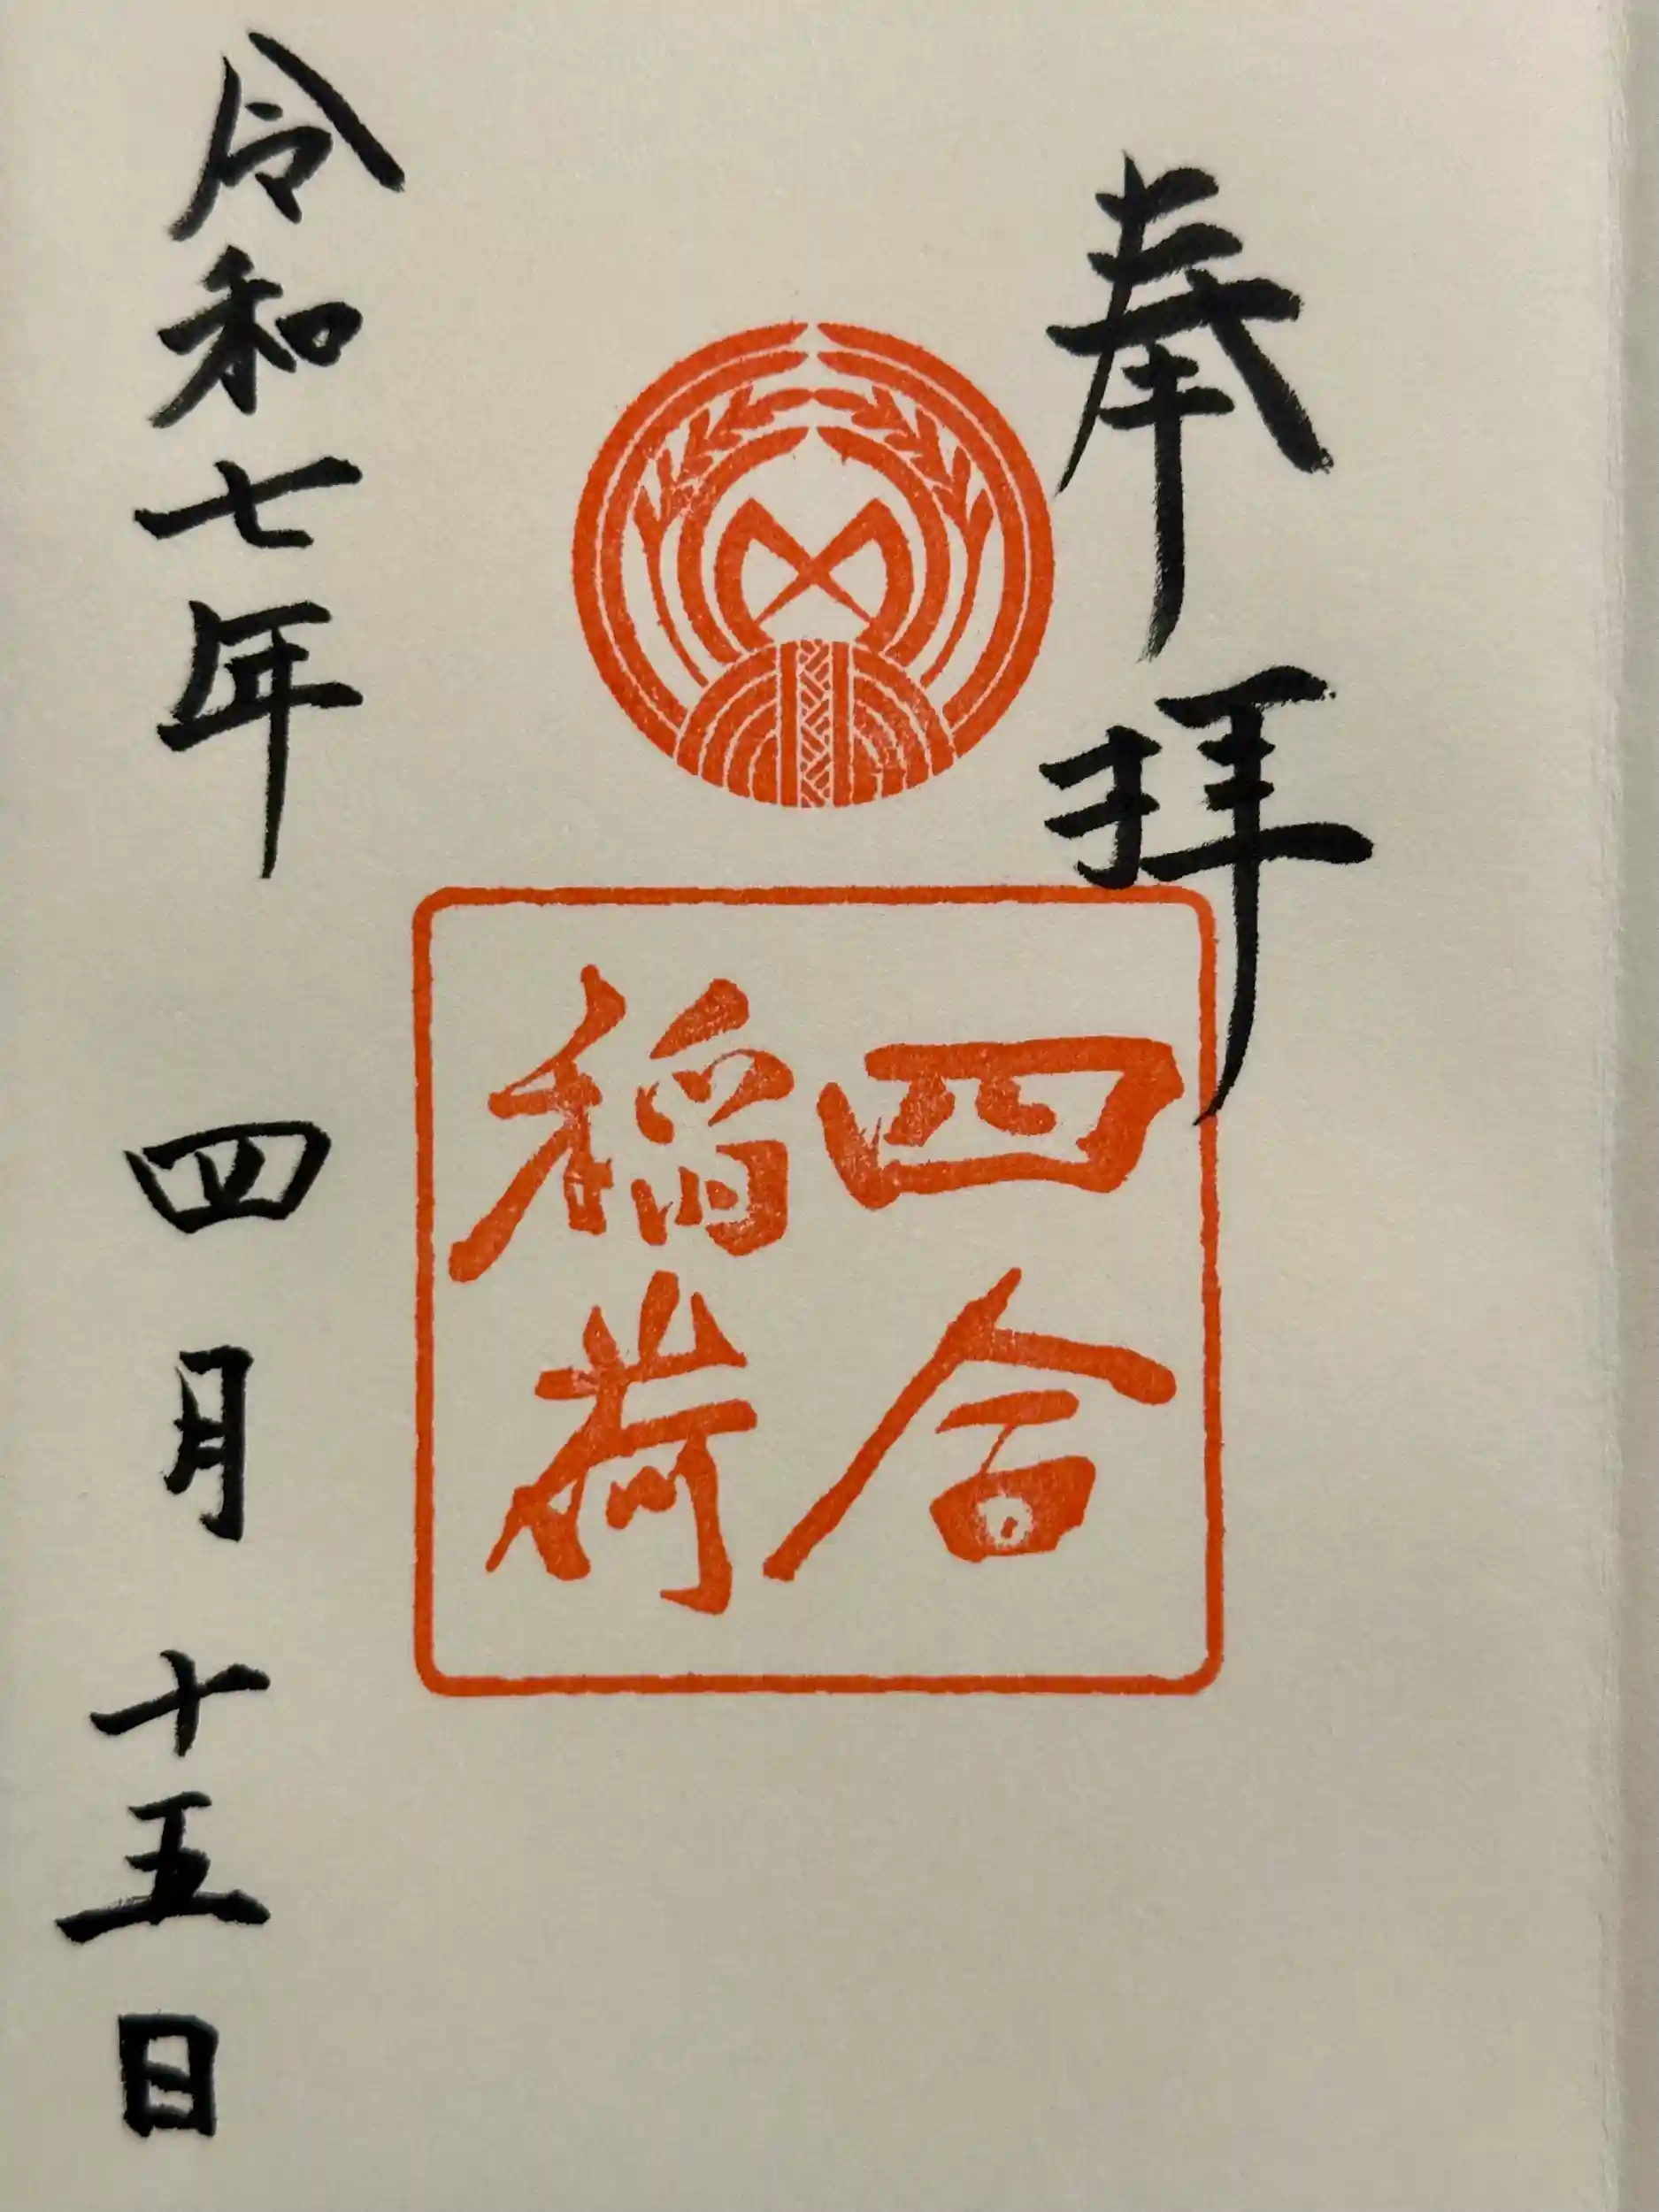 奉拝
四合
稲荷
令和七年 四月 十五日